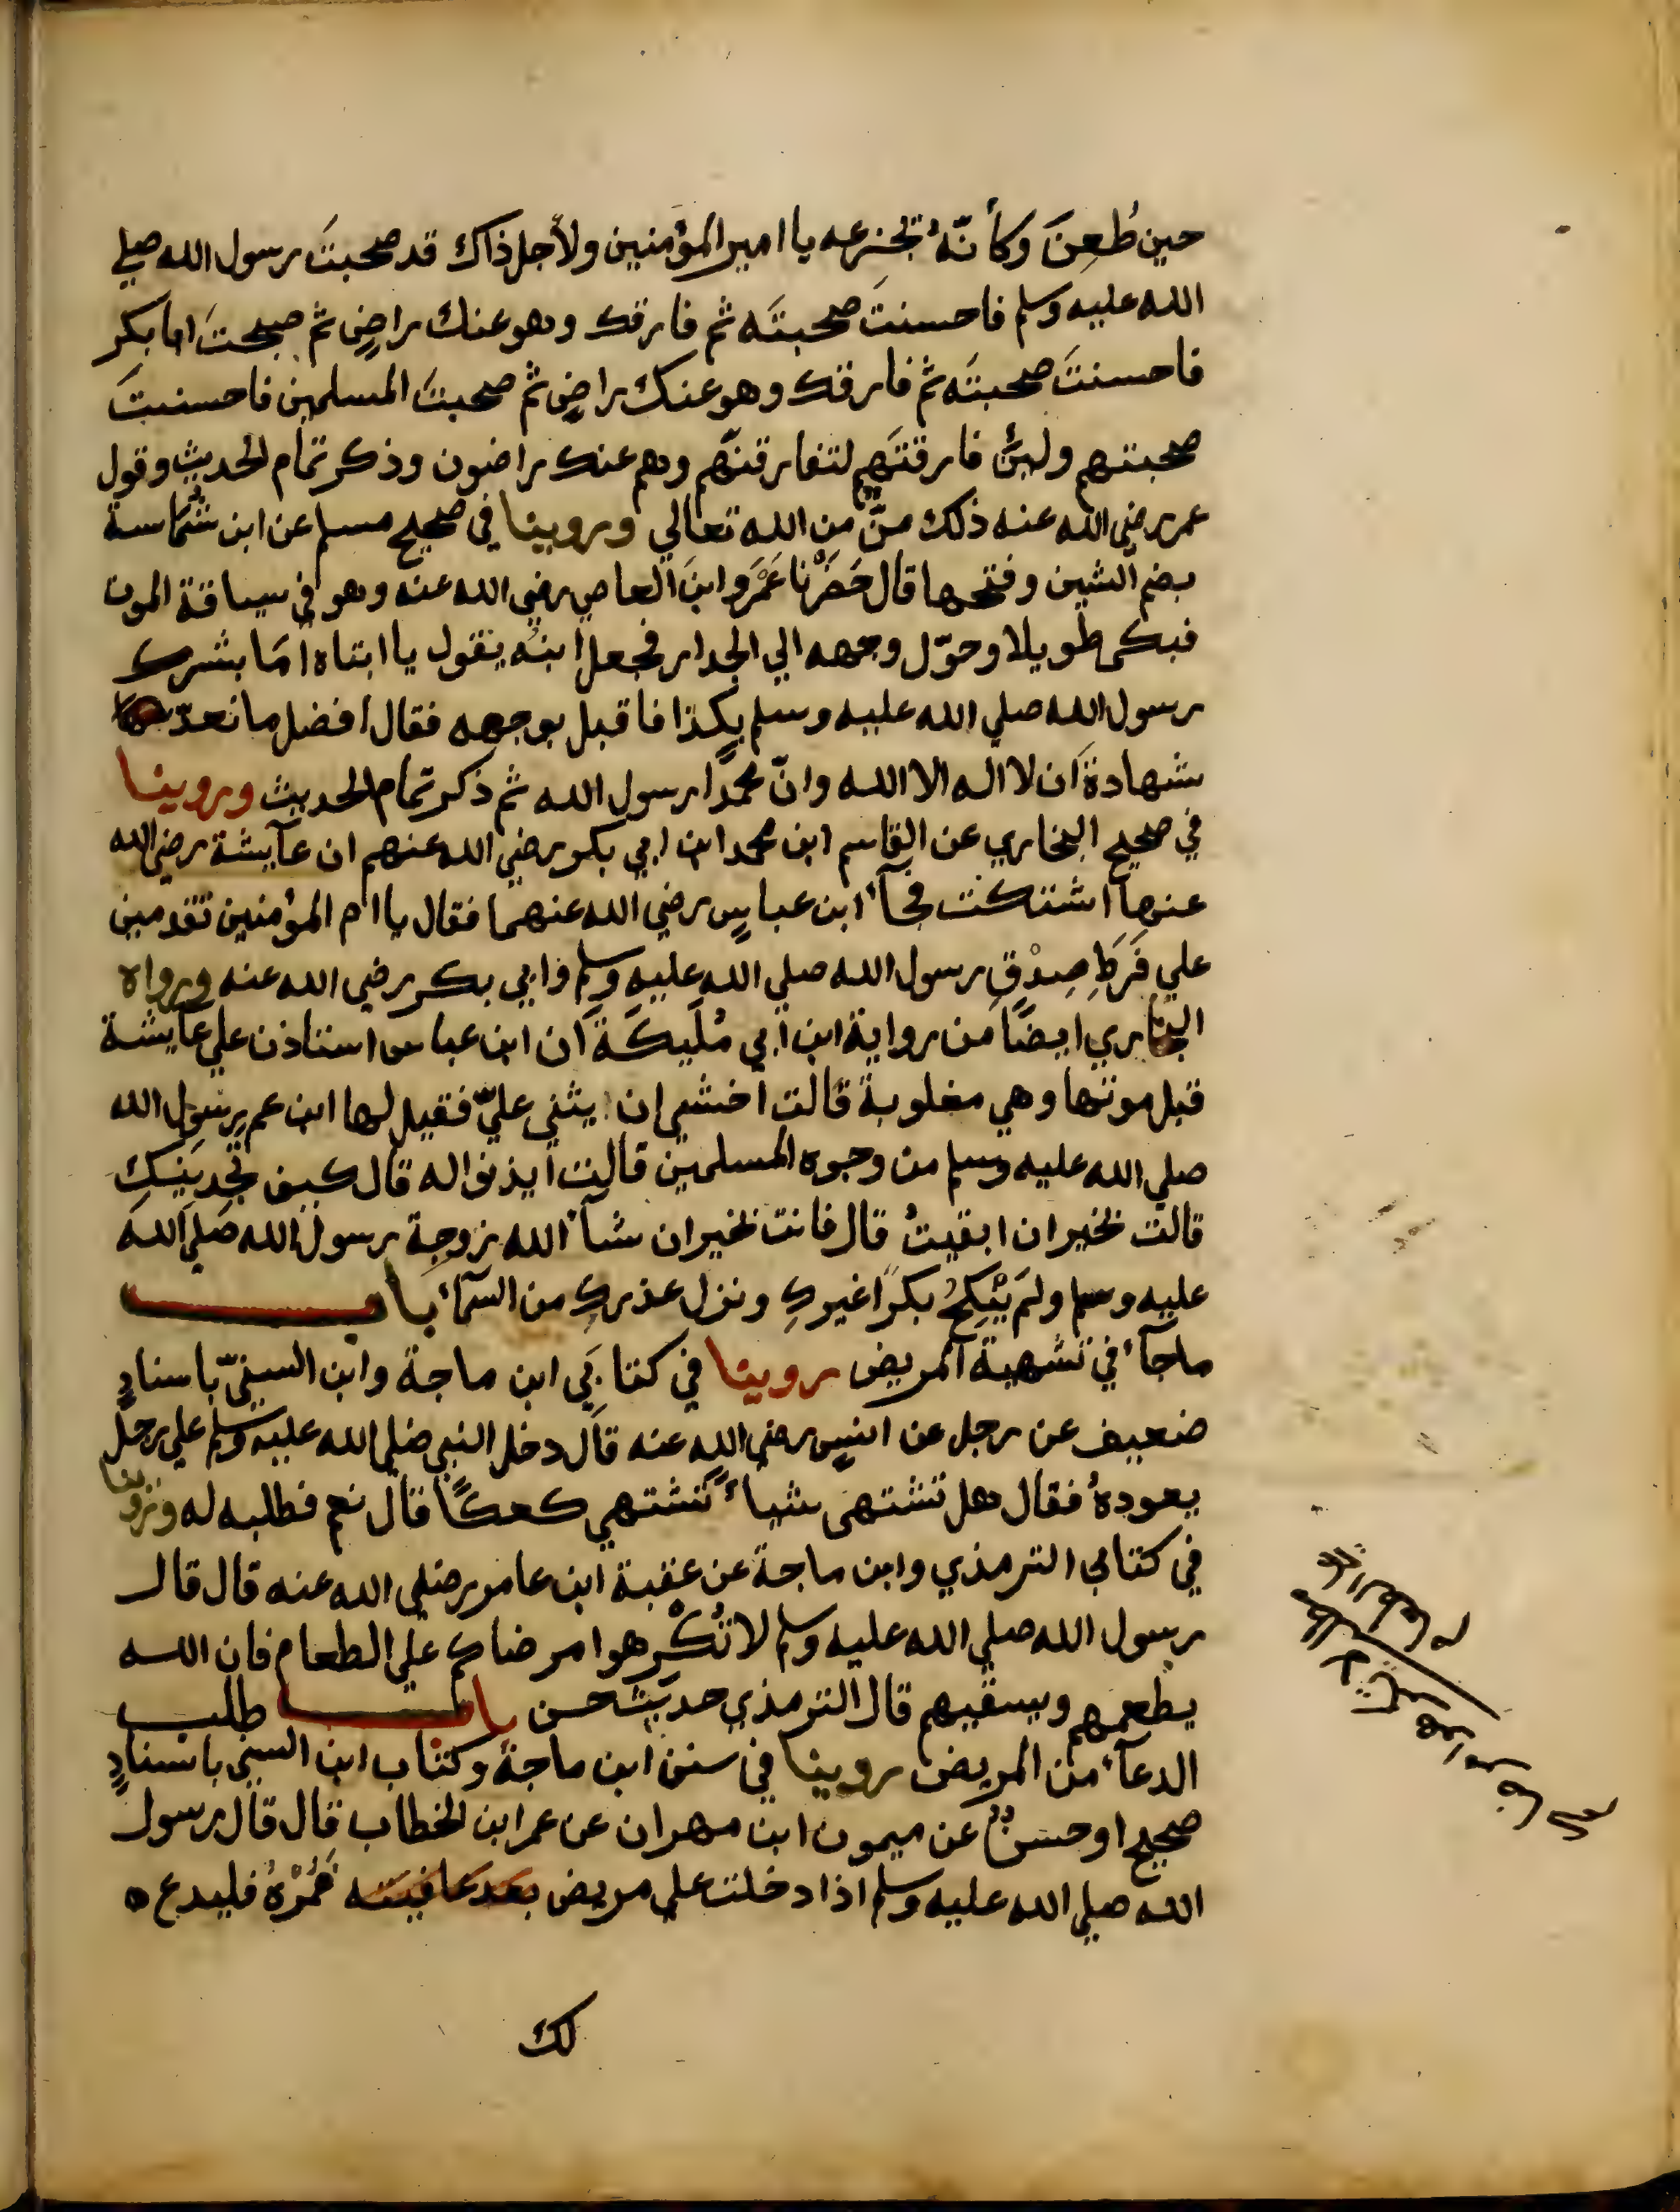 حين طُعِنَ وكأنّهُ تجزعه يا امير المؤمنين ولأجل ذاك قد صحبتَ رسول الله صلي
الله عليه وسلم فاحسنتَ صحبتَه ثم فارقك وهو عنك راضٍ ثم صحبتَ ابا بكر
فاحسنتَ صحبتَه ثم فارقك وهو عنك راضٍ ثم صحبتَ المسلمين فاحسنتَ
صحبتهم ولئن فارقتَهم لتفارقنّهم وهم عنك راضون وذكر تمام الحديث وقول
عمر رضي الله عنه ذلك منٌّ من الله تعالي وروينا في صحيح مسلم عن ابن شُماسة
بضم الشين وفتحها قال حَضَرْنا عَمْرَو ابنَ العاص رضي الله عنه وهو في سياقة الموت
فبكى طويلا وحوّل وجهه الي الجدار فجعل ابنُه يقول يا ابتاه اَمَا بشرك
رسول الله صلي الله عليه وسلم بكذا فاقبل بوجهه فقال افضل ما نعدّ
شهادة اَن لا اله الا الله وانّ محمدًا رسول الله ثم ذكر تمام الحديث وروينا
في صحيح البخاري عن القاسم ابن محمد ابن ابي بكر رضي الله عنهم ان عآيشة رضي الله
عنها اشتكت فجآء ابن عباسٍ رضي الله عنهما فقال يا ام المؤمنين تقدمين
علي فَرَطِ صِدْقٍ رسول الله صلي الله عليه وسلم وابي بكر رضي الله عنه ورواه
البخاري ايضًا من رواية ابن ابي مُلَيكَةَ اَن ابن عباس استاذن علي عآيشة
قبل موتها وهي مغلوبة قالت اخشي ان يثني عليّ فقيل لها ابن عم رسول الله
صلي الله عليه وسلم من وجوه المسلمين قالت ايذنوا له قال كيف تجدينكِ
قالت بخير ان ابقيتُ قال فانت بخير ان شآء الله زوجة رسول الله صلي الله
عليه وسلم ولم يَنْكِحُ بكرًا غيركِ ونزل عذركِ من السمآء باب
ماجآء في تشهية المريض روينا في كتابَي ابن ماجة وابن السنيّ باسنادٍ
ضعيف عن رجل عن انسٍ رضي الله عنه قال دخل النبي صلي الله عليه وسلم علي رجل
يعودهُ فقال هل تشتهى شياءً تشتهي كعكًا قال نعم فطلبه له وروينا
في كتابي الترمذي وابن ماجة عن عقبة ابن عامر رضي الله عنه قال قال
رسول الله صلي الله عليه وسلم لا تُكْرِهوا مرضاكم علي الطعام فان الله
يطعمهم ويسقيهم قال الترمذي حديث حسن باب طلب
الدعآء من المريض روينا في سنن ابن ماجة وكتاب ابن السني باسنادٍ
صحيح او حسنٍ عن ميمون ابن مهران عن عمر ابن الخطاب قال قال رسول
الله صلي الله عليه وسلم اذا دخلت علي مريض بعد عافيته فَمُرْهُ فليدع
لك